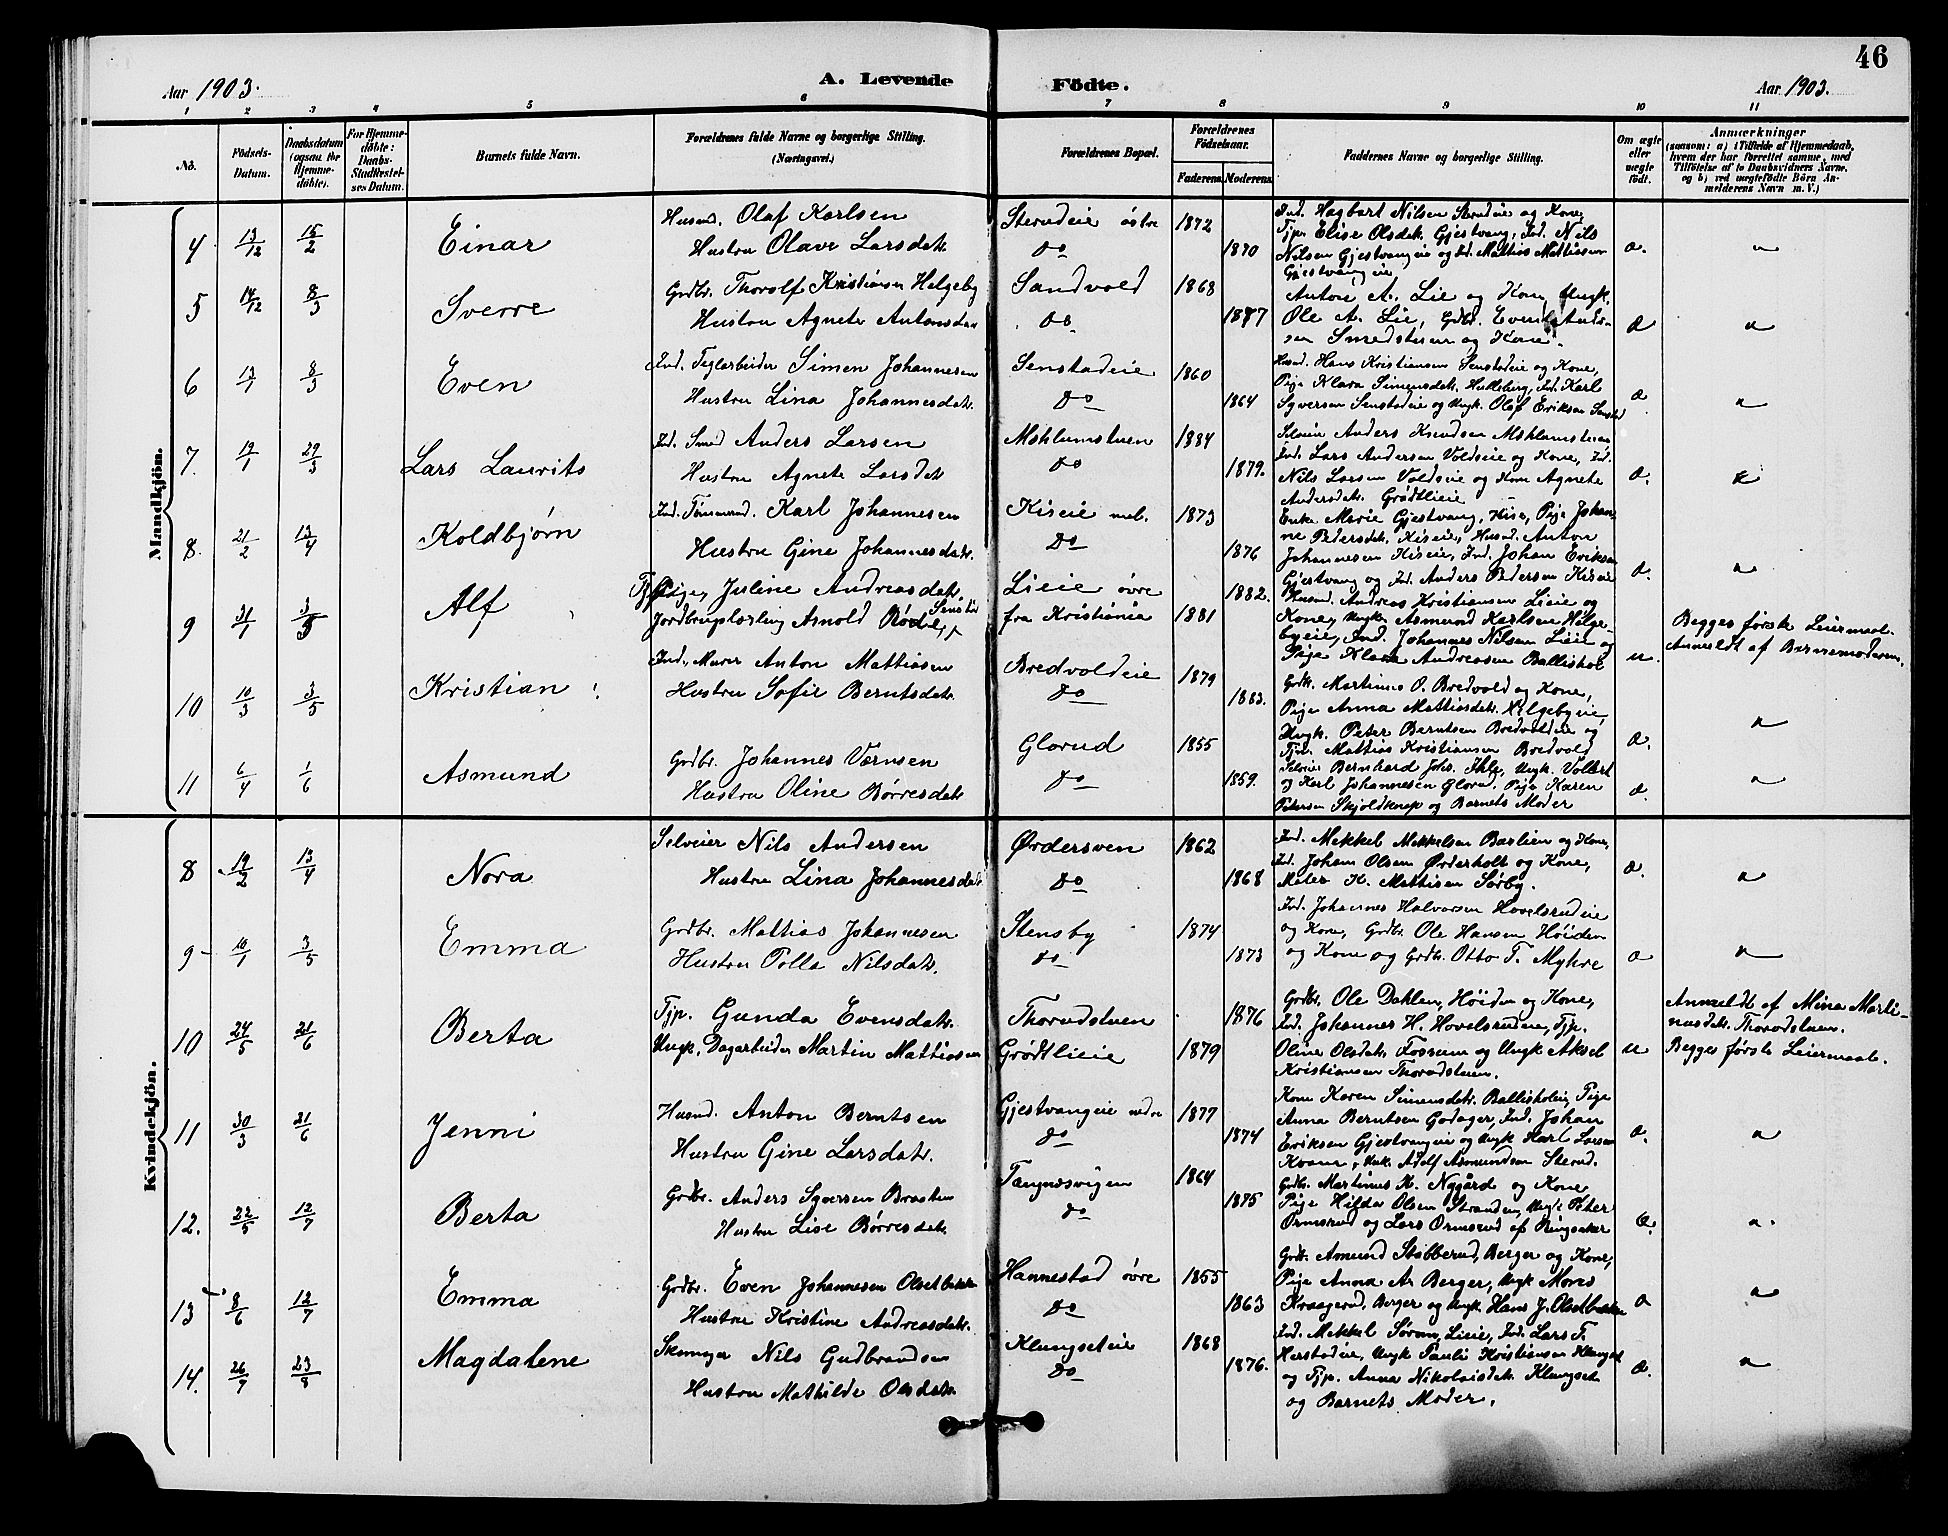 46
Aar 1903. A. Levende Födte. Aar 1903.
1 2 3 4 5 6 7 8 9 10 11
No.
Födsels-Datum.
Daabsdatum (ogsaa for Hjemme-døbte).
For Hjemme-døbte: Daabs-Stadfæstel-ses Datum.
Barnets fulde Navn.
Forældrenes fulde Navne og borgerlige Stilling. (Næringsvei.)
Forældrenes Bopæl.
Forældrenes Födselsaar.
Faderens. Moderens.
Faddernes Navne og borgerlige Stilling.
Om ægte eller uægte födt.
Anmærkninger
(saasom: a) i Tilfælde af Hjemmedaab, hvem der har forrettet samme, med Tilföielse af to Daabsvidners Navne, og b) ved uægtefödte Börn An-melderens Navn m. V.)
Mandkjön.
4 13/12 15/2 Einar
Husmd. Olaf Karlsen
Hustru Olave Larsdatr.
Sterudeie östre 1872
do 1870
Ind. Hagbart Nilsen Sterudeie og Kone,
Tjp. Elise Olsdatr. Gjestvang, Ind. Nils
Nilsen Gjestvangeie og Id. Mattias Mattiasen
Gjestvangeie
æ. "
5 14/12 8/3 Sverre
Grdbr. Thorolf Kristiansen Helgeby
Hustru Agnete Antonsdatr
Sandvold 1868
do 1877
Anton A. Lie og Kone, Ungk.
Ole A. Lie, Grdbr. Even Ands-
sen Smedstuen og Kone.
æ "
6 13/1 8/3 Even
Ind. Teglarbeider Simen Johannesen
Hustru Lina Johannesdatr.
Senstadeie 1860
do 1864
Husmd. Hans Kristiansen Senstadeie og Kone,
Pige Klara Simensdatr. Hulleberg, Ind. Karl
Syversen Senstadeie og Ungk. Olaf Eriksen Senstad
æ "
7. 19/1 29/3 Lars Laurits
Ind. Smed Anders Larsen
Hustru Agnete Larsdatr
Mæhlumstuen 1884
do 1879.
Selveier Anders Knudsen Mæhlumstuen
Ind. Lars Andersen Voldseie og Kone, Ind.
Nils Larsen Voldseie og Kone Agnete
Andersdatr. Grødtlieie
æ. "
8. 21/2 13/4 Koldbjørn
Ind. Tømmermd. Karl Johannesen
Hustru Gine Johannesdatr.
Kiseie mel. 1873
do 1876
Enke Marie Gjestvang, Kise, Pige Johan-
ne Pedersdatr. Kiseie, Husmd. Anton
Johannesen Kiseie, Ind. Johan Eriksen
Gjestvang og Id. Anders Pedersen Kiseie
æ. "
9 31/1 3/5 Alf
Tjp. Pige, Juline Andreasdatr.
Jordbrugslærling Arnold Røde, Senstad
Lieie övre 1882.
fra Kristiania 1881
Husmd. Andreas Kristiansen Lieie og
Kone, Ungk. Asmund Karlsen Helge-
byeie, Ind. Johannes Nilsen Lieie og
Pige Klara Andreasen Ballishol
u.
Begges første Leiermaal.
Anmeldt af Barnemoderen.
10 10/3 3/5 Kristian
Ind., Murer Anton Mattiasen
Hustru Sofie Berntsdatr.
Bredvoldeie 1879
do 1883.
Grdbr. Martinus O. Bredvold og Kone,
Pige Anna Mattiasdatr. Helgebyeie,
Ungk. Peter Berntsen Bredvoldeie og
Tjp. Mattias Kristiansen Bredvold
æ. "
11 6/4 1/6 Asmund
Grdbr. Johannes Værnsen
Hustru Oline Børresdatr
Glorud 1855
do 1859.
Selveier Bernhard Johs. Ihle, Ungk. Volbert
og Karl Johannesen Glorud, Pige Karen
Petersen Skjoldknep og Barnets Moder
æ. "
Kvindekjön.
8 19/2 13/4 Nora
Selveier Nils Andersen
Hustru Lina Johannesdatr
Ørdersven 1862
do 1868
Ind. Mekkel Mekkelsen Baslien og Kone,
Id. Johan Olsen Ørderholt og Kone,
Maler K. Mattisen Sørby.
æ. "
9 10/1 3/5 Emma
Grdbr. Mattias Johannesen
Hustru Polla Nilsdatr.
Stensby 1874
do 1873
Ind. Johannes Halvorsen Hovelsrudeie
og Kone, Grdbr. Ole Hansen Höiden
og Kone og Grdbr. Otto T. Myhre
æ "
10 24/5 21/6 Berta
Tjp. Gunda Evensdatr.
Ungk., Dagarbeider Martin Mattiasen
Thorudstuen 1876
Grødtlieie 1879
Grdbr. Ole Dahlen, Höiden og Kone,
Ind. Johannes H. Hovelsrudeie, Tjp.
Oline Olsdatr. Fossum og Ungk Aksel
Kristiansen Thorudstuen.
u
Anmeldt af Mina Marti-
nusdatr. Thorudstuen.
Begges første Leiermaal.
11 30/3 21/6 Jenni
Husmd. Anton Berntsen
Hustru Gine Larsdatr.
Gjestvangeie nedre 1877
do 1874
Kone Karen Simensdatr. Ballisholeie, Pige
Anna Berntsen Godager, Ind. Johan
Eriksen Gjestvangeie og Ungk Karl Larsen
Kvam, Ungk. Adolf Asmundsen Sterud.
æ. "
12. 22/5 12/7 Berta
Grdbr. Anders Syversen Braaten
Hustru Lise Børresdatr.
Tangnæsvigen 1864
do 1875
Grdbr. Martinus K. Nygård og Kone
Pige Hilda Olsen Stranden, Ungk Peter
Ormsrud og Lars Ormsrud af Ringsaker
æ. "
13 8/6 12/7 Emma
Grdbr. Even Johannesen Olsetbakke
Hustru Kristine Andreasdatr.
Hannestad övre 1855
do 1863
Grdbr. Amund Stabberud, Berger og Kone,
Pige Anna A. Berger, Ungk Mons
Kraagerud, Berger og Ungk. Hans J. Olsetbakke
æ "
14. 26/7 23/8 Magdalene
Skomager Nils Gudbrandsen
Hustru Mathilde Olsdatr.
Klungseteie 1868
do 1876.
Ind. Mekkel Sørum, Lieie, Ind. Lars T.
Herstadeie, Ungk Pauli Kristiansen Klungset
og Tjp. Anna Nikolaisdatr. Klungset
og Barnets Moder.
æ. "